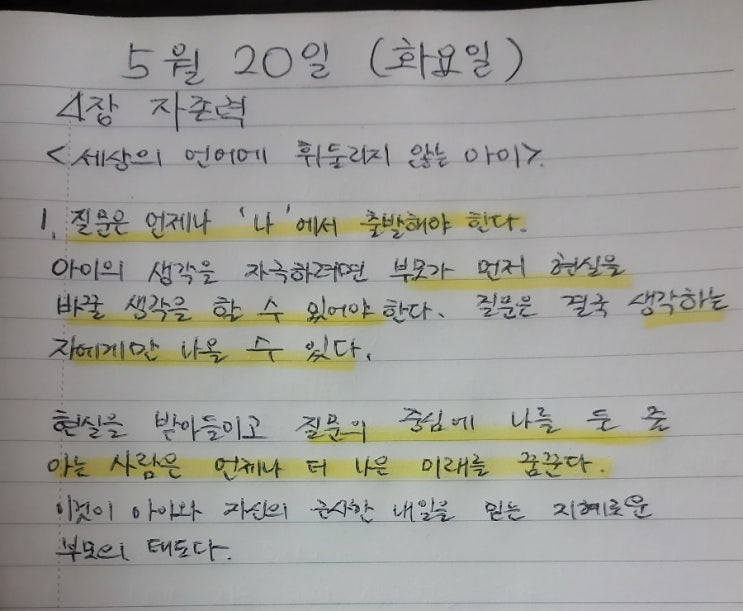 5월 20일 (화요일)
4장 자존력
<세상의 언어에 휘둘리지 않는 아이>.
1. 질문은 언제나 '나'에서 출발해야 한다.
아이의 생각을 자극하려면 부모가 먼저 현실을
바꿀 생각을 할 수 있어야 한다. 질문은 결국 생각하는
자에게만 나올 수 있다.
현실을 받아들이고 질문의 중심에 나를 둔 줄
아는 사람은 언제나 더 나은 미래를 꿈꾼다.
이것이 아이와 자신의 근사한 내일을 믿는 지혜로운
부모의 태도다.